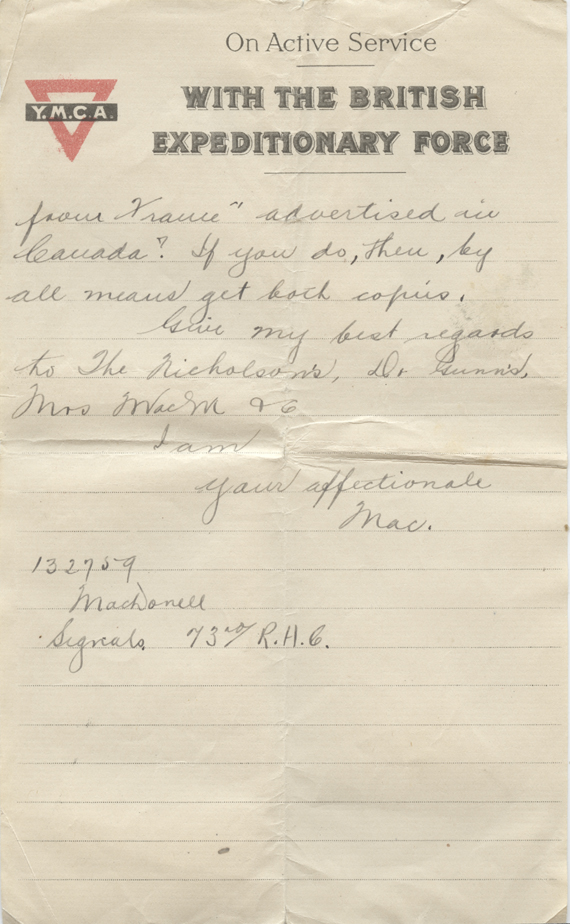 On Active Service
WITH THE BRITISH
EXPEDITIONARY FORCE
Y.M.C.A.
from France" advertised in
Canada? If you do, then, by
all means get both copies.
Give my best regards
to The Nicholson's, Dr Gunn's,
Mrs MacM &c
I am
your affectionate
Mac.
132759
MacDonell
Signals 73rd R.H.C.